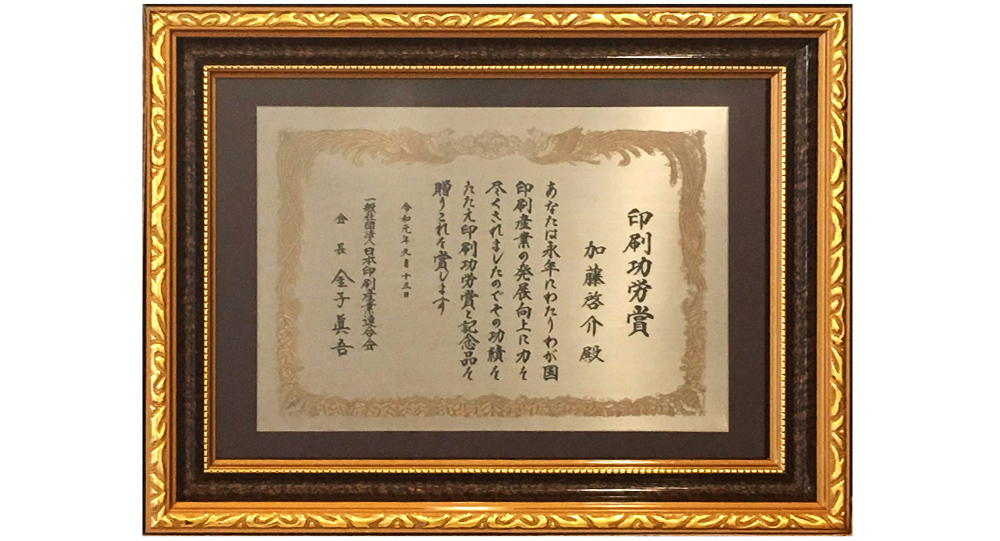 印刷功労賞
加藤啓介殿
あなたは永年にわたりわが国
印刷産業の発展向上に力を
尽くされましたのでその功績を
たたえ印刷功労賞と記念品を
贈りこれを賞します
令和元年九月十三日
一般社団法人日本印刷産業連合会
会長金子眞吾